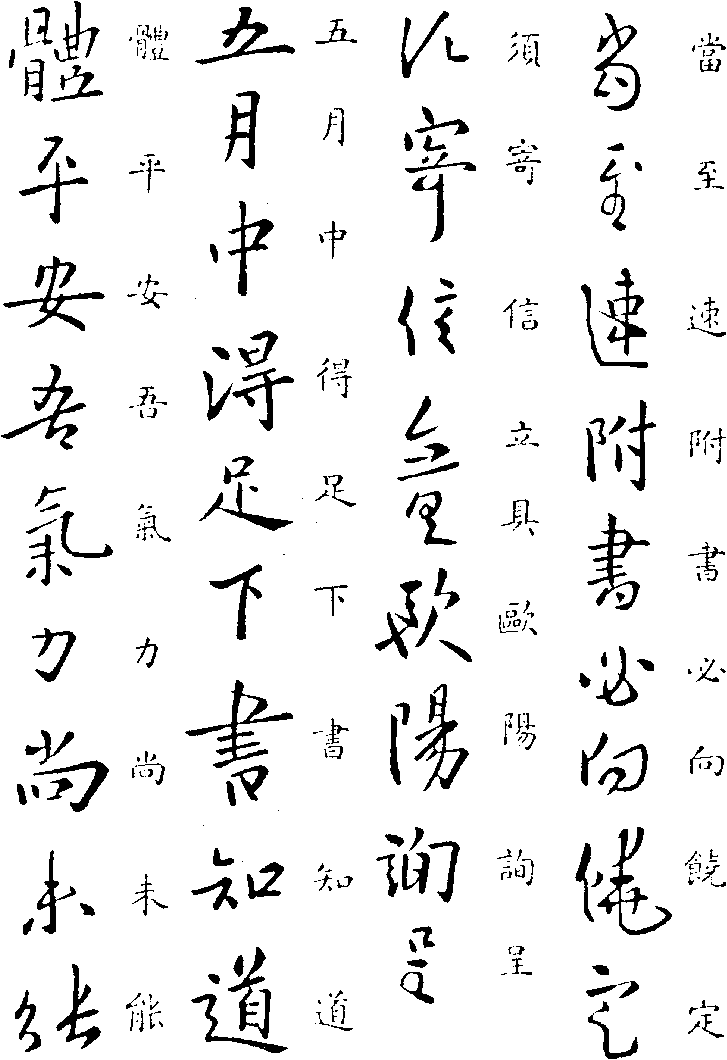 當至速附書必向饒定
當至速附書必向饒定
須寄信立具歐陽詢呈
須寄信立具歐陽詢呈
五月中得足下書知道
五月中得足下書知道
體平安吾氣力尚未能
體平安吾氣力尚未能